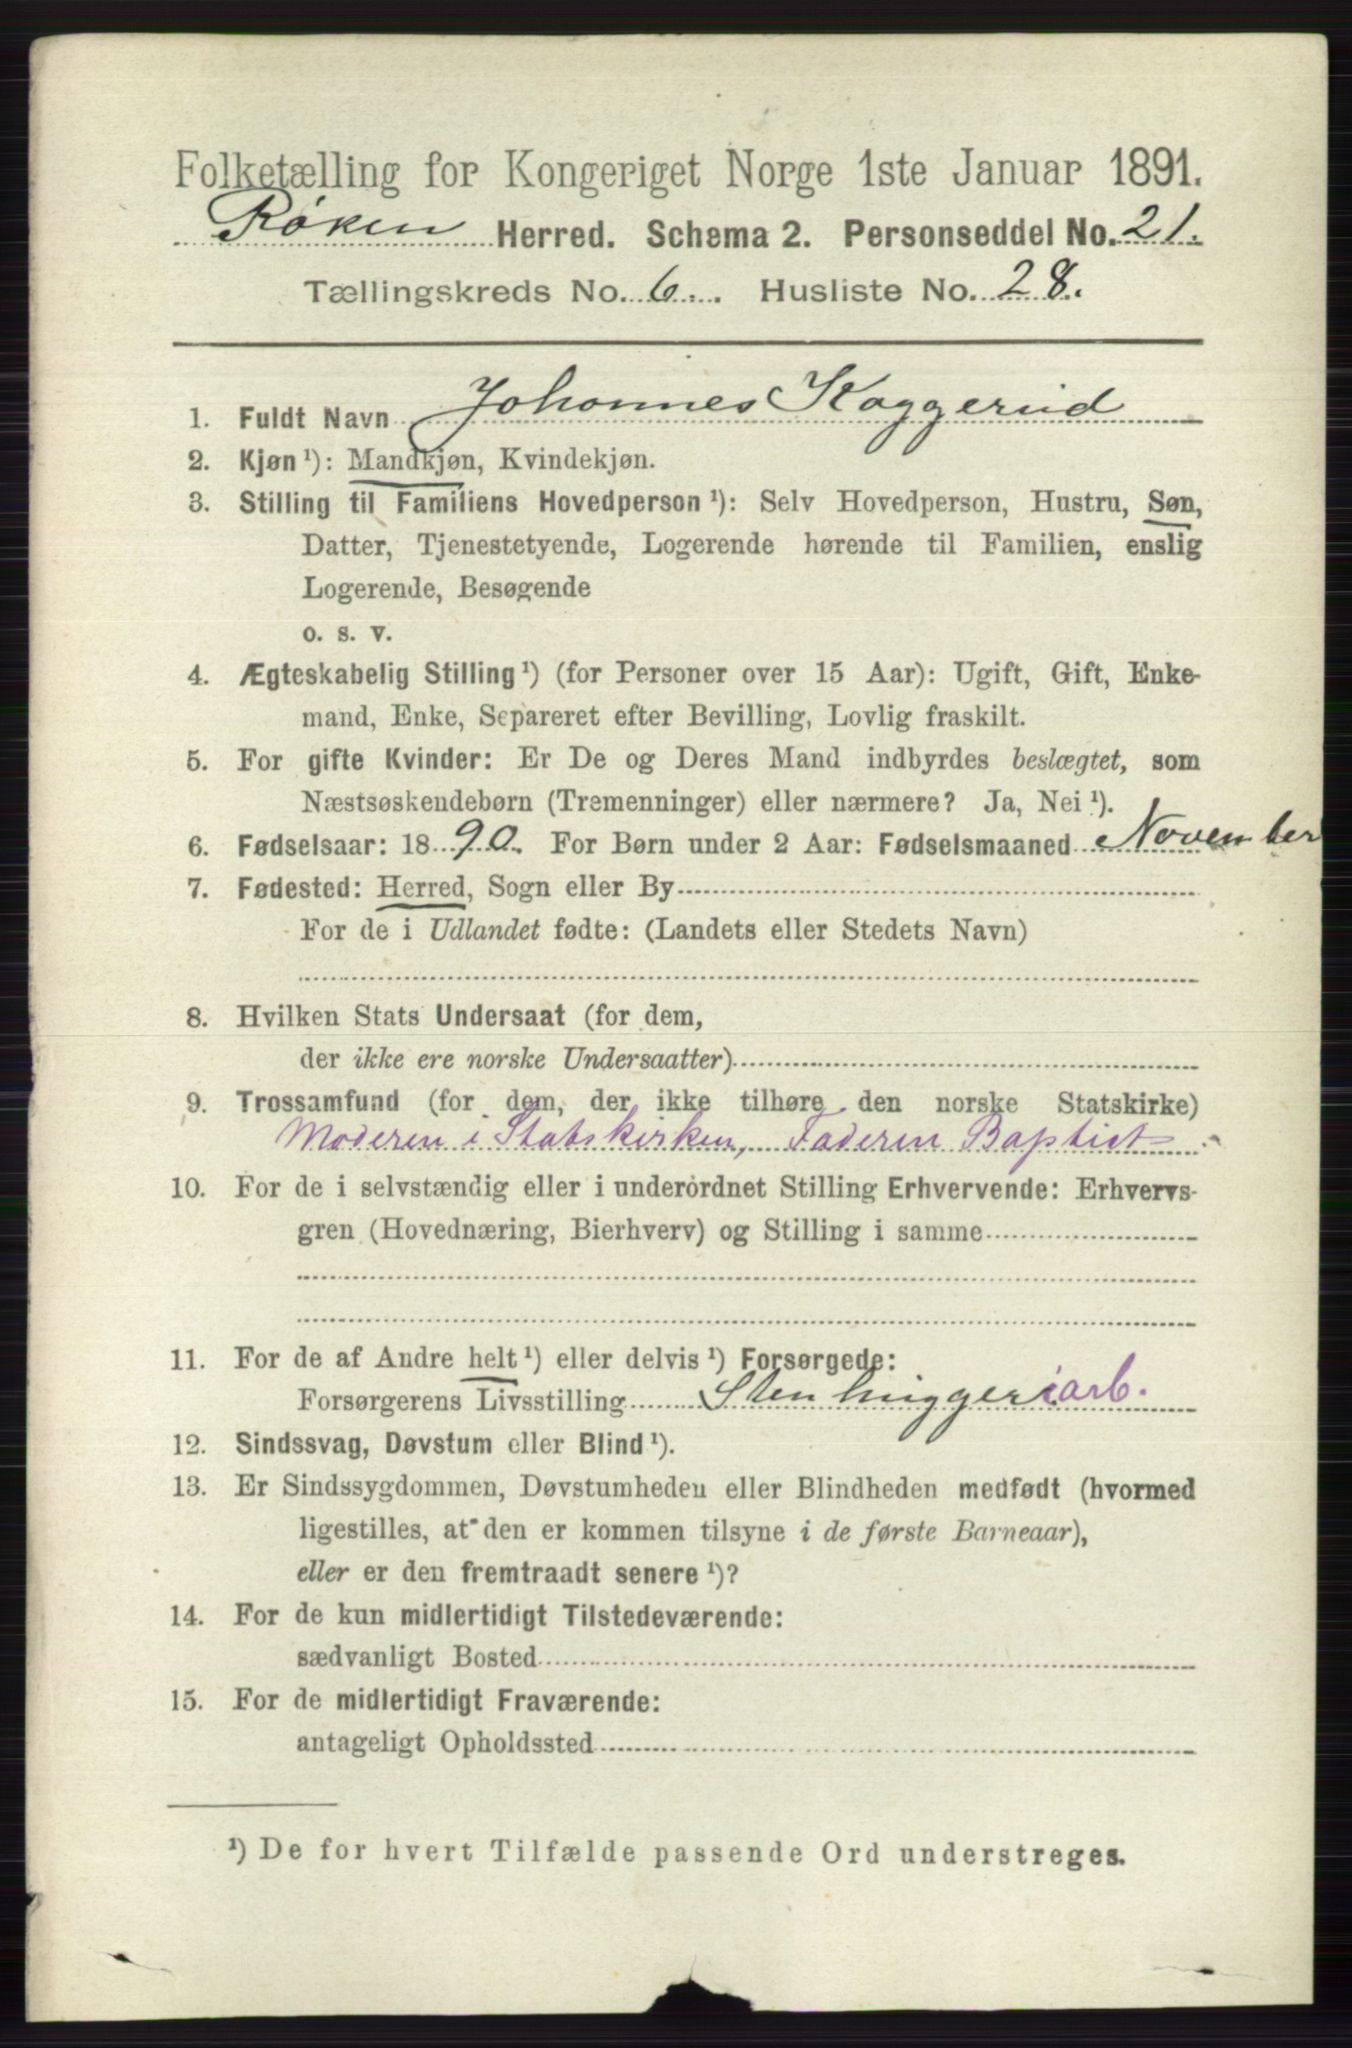 Folketælling for Kongeriget Norge 1ste Januar 1891.
Røken Herred. Schema 2. Personseddel No. 21.
Tællingskreds No. 6. Husliste No. 28.
1. Fuldt Navn Johannes Kaggerud
2. Kjøn ¹): Mandkjøn, Kvindekjøn.
3. Stilling til Familiens Hovedperson ¹): Selv Hovedperson, Hustru, Søn,
Datter, Tjenestetyende, Logerende hørende til Familien, enslig
Logerende, Besøgende
o. s. v.
4. Ægteskabelig Stilling ¹) (for Personer over 15 Aar): Ugift, Gift, Enke-
mand, Enke, Separeret efter Bevilling, Lovlig fraskilt.
5. For gifte Kvinder: Er De og Deres Mand indbyrdes beslægtet, som
Næstsøskendebørn (Tremenninger) eller nærmere? Ja, Nei ¹).
6. Fødselsaar: 1890. For Børn under 2 Aar: Fødselsmaaned November
7. Fødested: Herred, Sogn eller By
For de i Udlandet fødte: (Landets eller Stedets Navn)
8. Hvilken Stats Undersaat (for dem,
der ikke ere norske Undersaatter)
9. Trossamfund (for dem, der ikke tilhøre den norske Statskirke)
Moderen i Statskirken, Faderen Baptist
10. For de i selvstændig eller i underordnet Stilling Erhvervende: Erhvervs-
gren (Hovednæring, Bierhverv) og Stilling i samme
11. For de af Andre helt ¹) eller delvis ¹) Forsørgede:
Forsørgerens Livsstilling Stenhuggeriarb.
12. Sindssvag, Døvstum eller Blind ¹).
13. Er Sindssygdommen, Døvstumheden eller Blindheden medfødt (hvormed
ligestilles, at den er kommen tilsyne i de første Barneaar),
eller er den fremtraadt senere ¹)?
14. For de kun midlertidigt Tilstedeværende:
sædvanligt Bosted
15. For de midlertidigt Fraværende:
antageligt Opholdssted
¹) De for hvert Tilfælde passende Ord understreges.